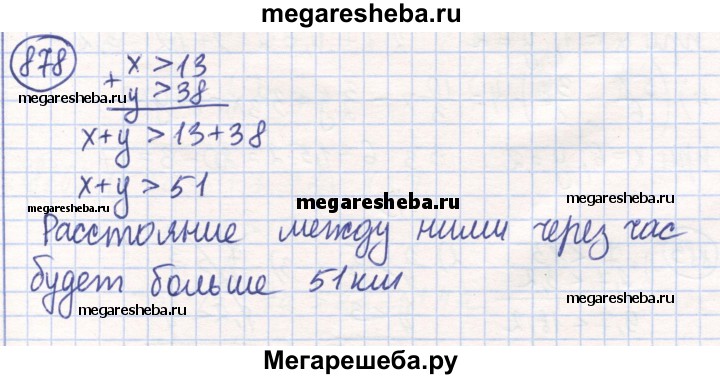 megaresheba.ru
878
x > 13
+
y > 38
megaresheba.ru
megaresheba.ru
x+y > 13+38
x+y > 51
megaresheba.ru
megaresheba.ru
megaresheba.ru
Расстояние между ними через час
будет больше 51км
megaresheba.ru
megaresheba.ru
Мегарешеба.ру